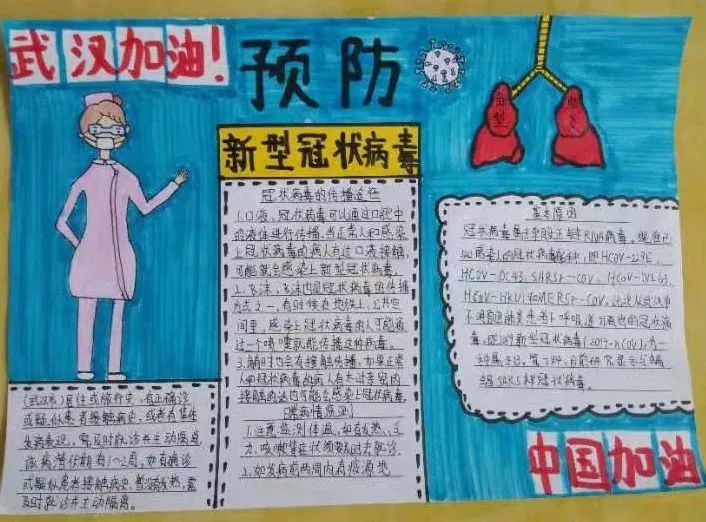 武汉加油!
预防
新型冠状病毒
新型
肺炎
冠状病毒的传播途径
1.口液,冠状病毒可以通过口腔中
的液体进行传播,当正常人和感染
上冠状病毒的病人有过口液接触,
可能就会感上新型冠状病毒。
2.飞沫,飞沫也是冠状病毒的传播
方式之一,有时候在地铁上,公共空
间里,感染上冠状病毒的人可能通
过一个喷嚏就能传播这种病毒。
3.解时也会有接触传播,如果正常
人和冠状病毒的病人有过亲密的
接触的话也可能会上冠状病毒。
1.注意监测体温,如有发热、乏
力、咳嗽等症状须及时去就诊
2.如发病前两周内有疫源地
(武汉市)居住或旅行史,有正确诊
或疑似患者接触病史,或者有集性
发病表现,需及时就诊并主动隔离
做病潜伏期有1~2周,如有确诊
或疑似患者接触病史,暂没发热,需
及时就诊并主动隔离。
基本原因
冠状病毒属于单股正链RNA病毒,现已
知感染人的冠状病毒6种,即HCOV-229E、
HCOV-OC43、SARSr-COV、HCOV-NL63、
HCOV-HKU1和MERSr-COV,此次从武汉市
不明原因肺炎患者下呼吸道分离出的冠状病
毒,即2019新型冠状病毒(2019-nCOV),为一
种属于β,第7种,目前研究显示与蝙
蝠SARS样冠状病毒。
中国加油